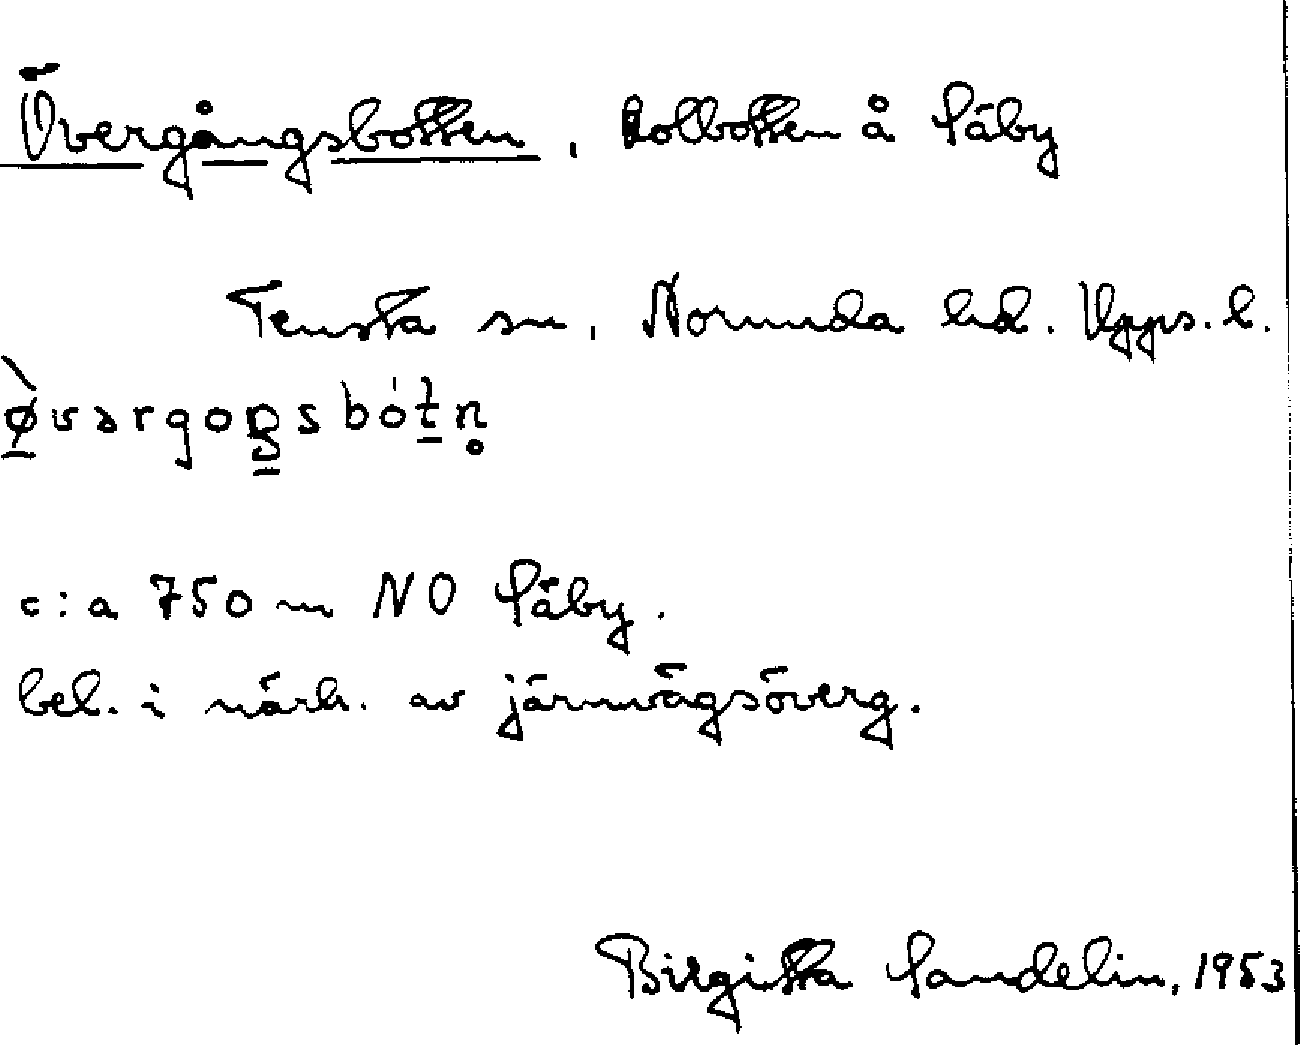 Övergångsbotten, kolbotten å Säby
Tensta sn, Norunda hd. Upps. l.
ø̀vərgoŋsbót̠n̥
c:a 750 m NO Säby.
bel. i närh. av järnvägsöverg.
Birgitta Sandelin, 1953